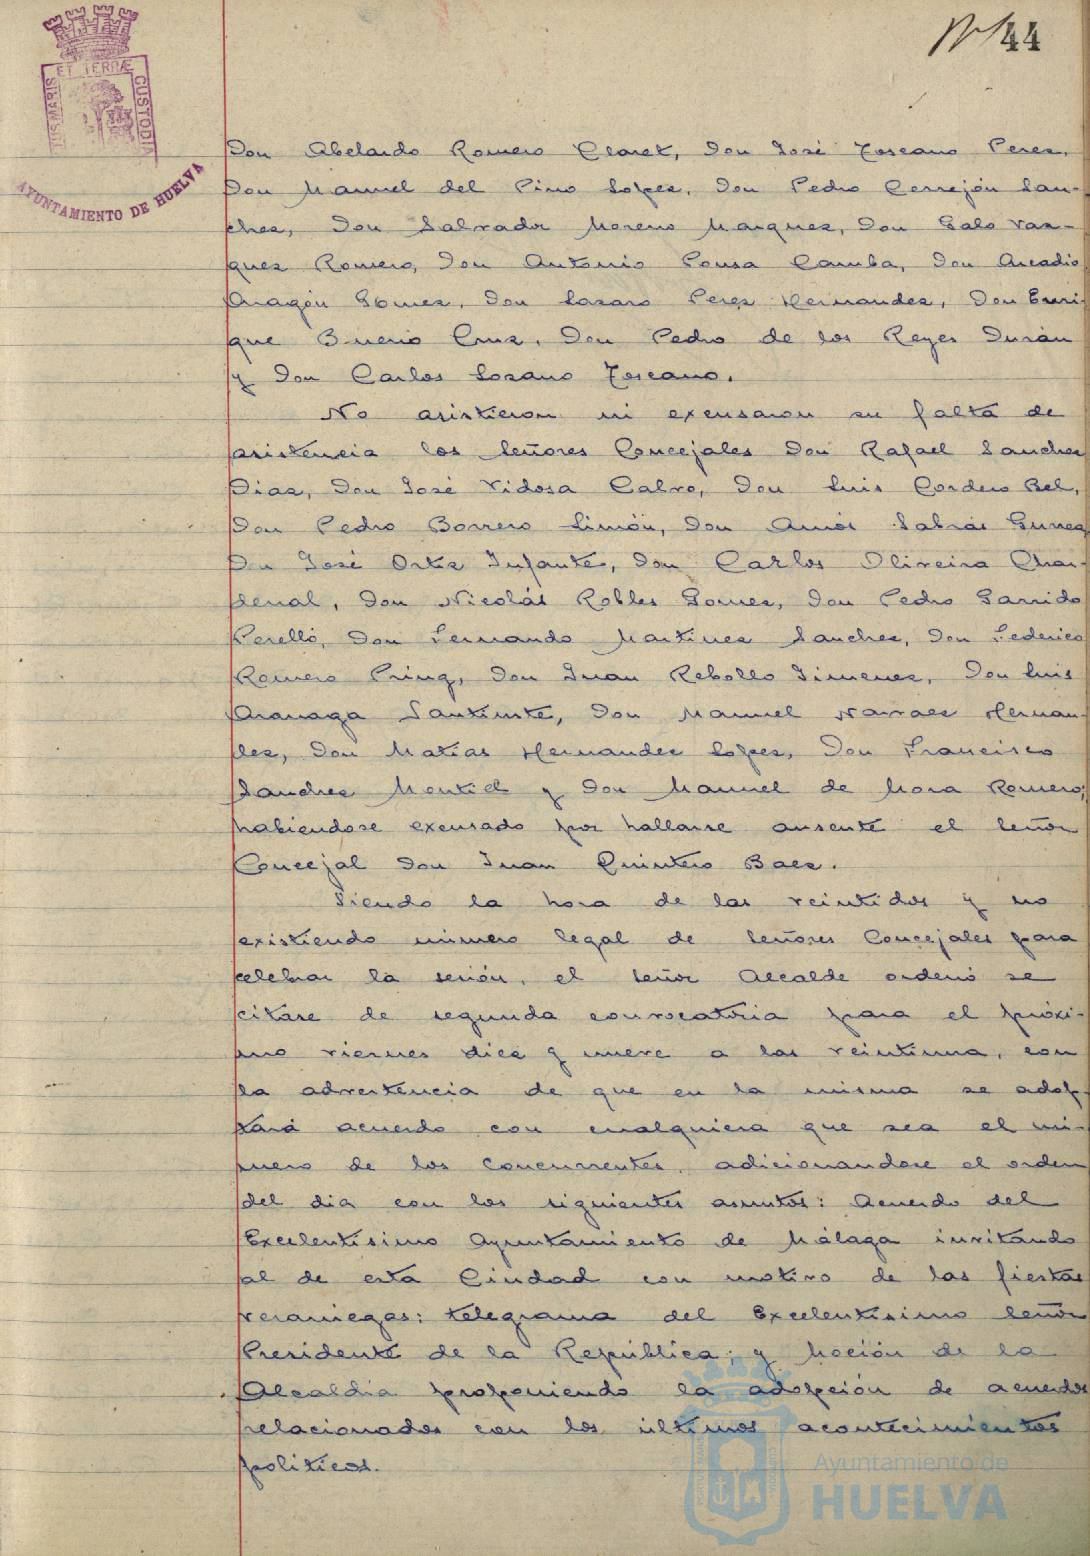 44
ET TERRÆ
PORTUS MARIS
CUSTODIA
AYUNTAMIENTO DE HUELVA
Don Abelardo Romero Claret, Don José Toscano Perez,
Don Manuel del Pino Lopez, Don Pedro Cerrejón San-
chez, Don Salvador Moreno Marquez, Don Galo Vaz-
quez Romero, Don Antonio Pousa Camba, Don Arcadio
Aragón Gomez, Don Lazaro Perez Hernandez, Don Enri-
que Bueno Cruz, Don Pedro de los Reyes Durán
y Don Carlos Lozano Toscano.
No asistieron ni excusaron su falta de
asistencia los Señores Concejales Don Rafael Sanchez
Diaz, Don José Vidosa Calvo, Don Luis Cordero Bel,
Don Pedro Borrero Limón, Don Amós Sabrás Gurrea
Don José Ortiz Infante, Don Carlos Oliveira Char-
denal, Don Nicolás Robles Gomez, Don Pedro Garrido
Perelló, Don Fernando Martinez Sanchez, Don Federico
Romero Pring, Don Juan Rebollo Jimenez, Don Luis
Aranaga Don Manuel Narvaez Hernan-
dez, Don Matías Hernandez Lopez, Don Francisco
Sanchez Montiel y Don Manuel de Mora Romero;
habiendose excusado por hallarse ausente el Señor
Concejal Don Juan Quintero Baez.
Siendo la hora de las veintidos y no
existiendo número legal de Señores Concejales para
celebrar la sesión, el Señor Alcalde ordenó se
citase de segunda convocatoria para el próxi-
mo viernes diez y nueve a las veintiuna, con
la advertencia de que en la misma se adop-
tará acuerdo con cualquiera que sea el nú-
mero de los concurrentes, adicionandose el orden
del dia con los siguientes asuntos: Acuerdo del
Excelentísimo Ayuntamiento de Málaga invitando
al de esta Ciudad con motivo de las fiestas
veraniegas; telegrama del Excelentísimo Señor
Presidente de la República; y Moción de la
Alcaldía proponiendo la adopción de acuerdos
relacionados con los últimos acontecimientos
políticos.
Ayuntamiento de
HUELVA